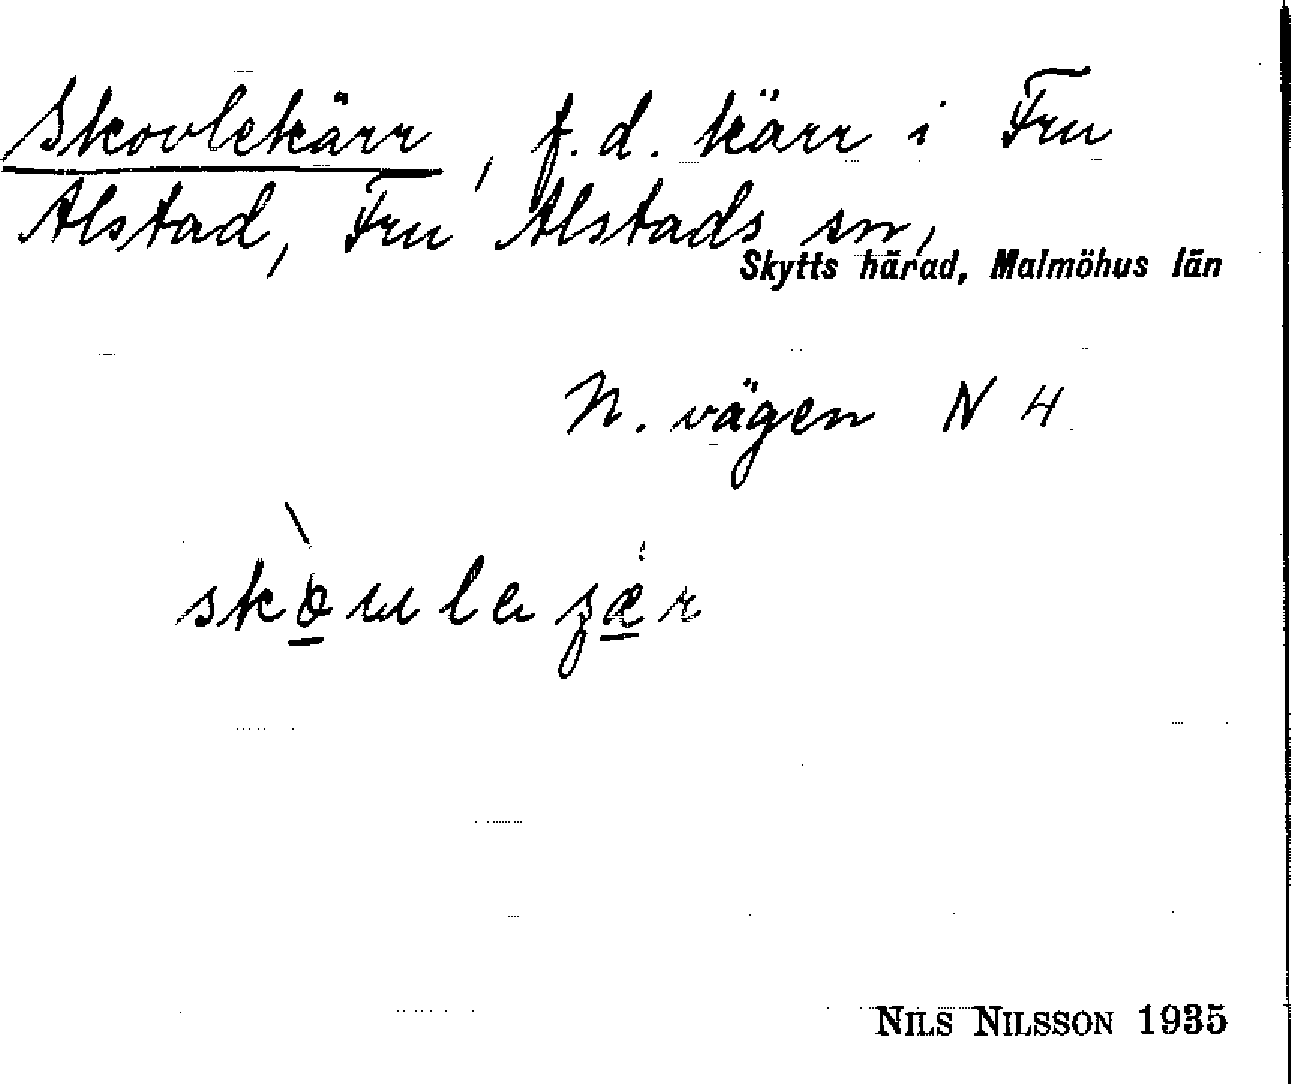 Skovlekärr, f.d. kärr i Fru
Alstad, Fru Alstads sn,
Skytts härad, Malmöhus län
N. vägen N 4
NILS NILSSON 1935